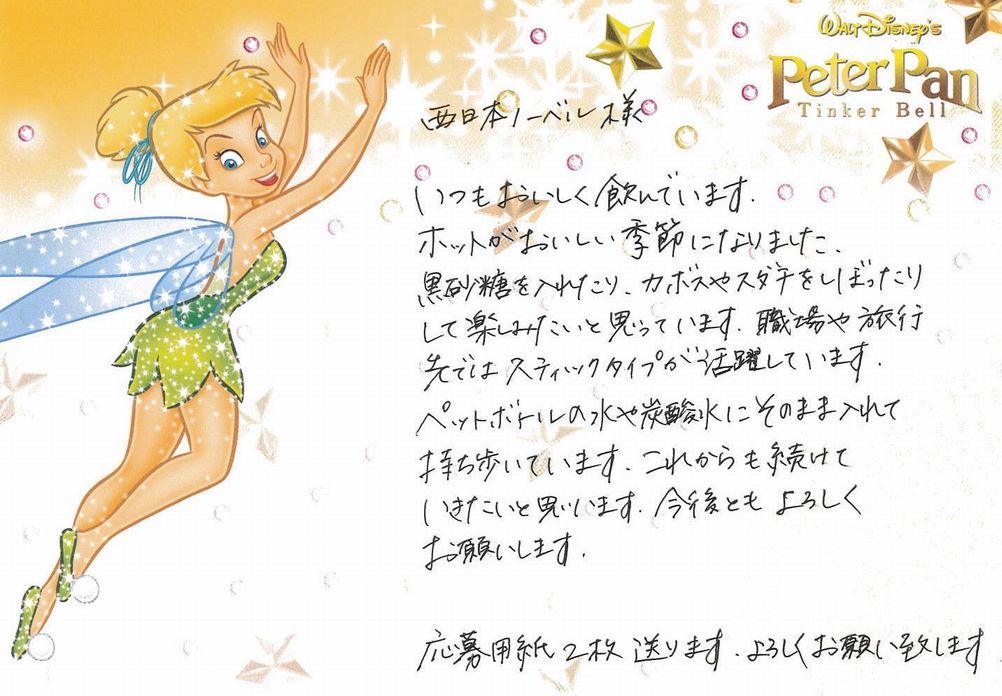 WALT DISNEY'S
Peter Pan
Tinker Bell
西日本ノーベル様
いつもおいしく飲んでいます.
ホットがおいしい季節になりました、
黒砂糖を入れたり、カボスやスダチをしぼったり
して楽しみたいと思っています. 職場や旅行
先ではスティックタイプが活躍しています.
ペットボトルの水や炭酸水にそのまま入れて
持ち歩いています. これからも続けて
いきたいと思います. 今後とも よろしく
お願いします.
応募用紙2枚 送ります. よろしくお願い致します